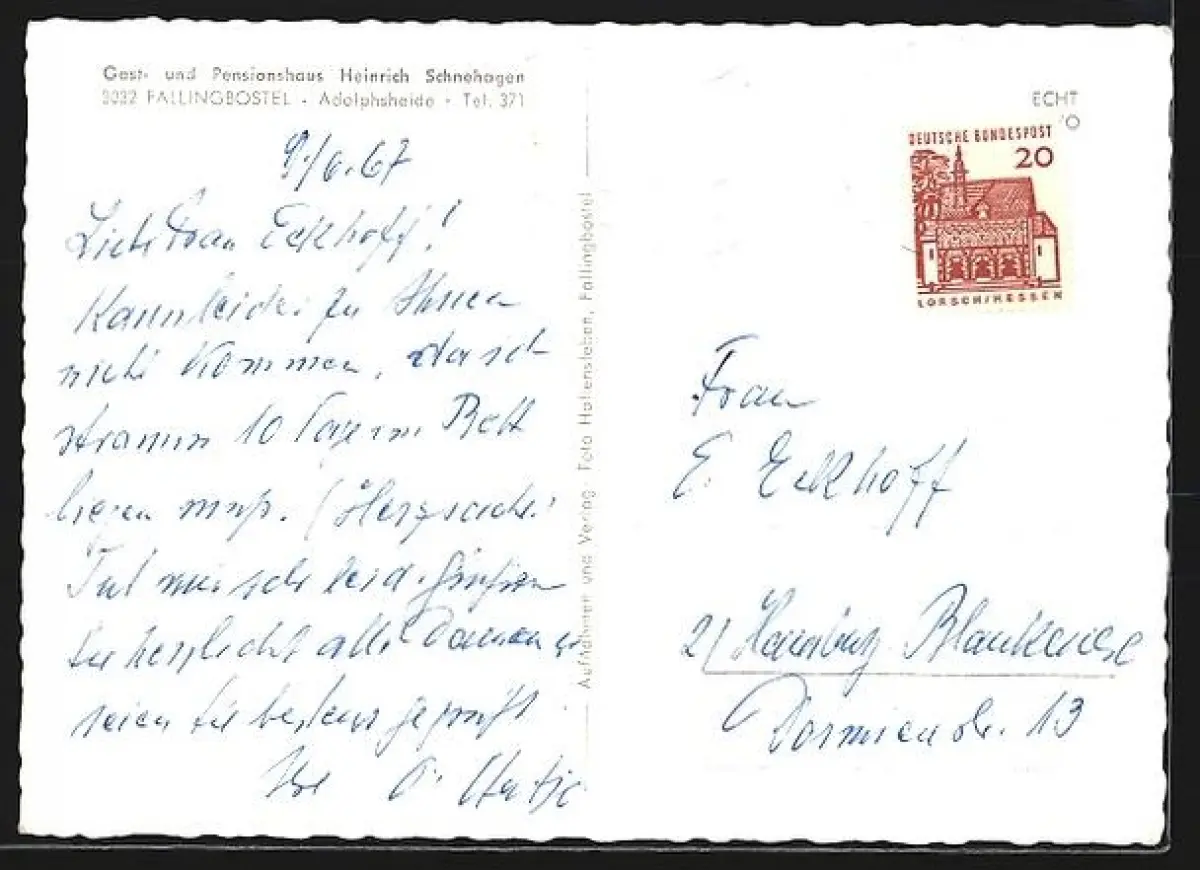 Gast- und Pensionshaus Heinrich Schnehagen
3032 FALLINGBOSTEL - Adolphsheide - Tel. 371
9./6.67
Liebe Frau Eckhoff!
Kann leider zu Ihnen
nicht kommen, da ich
stramm 10 Tage im Bett
liegen muß. (Herzsache.
Tut mir sehr leid. Grüßen
Sie herzlichst alle Damen u
seien Sie bestens gegrüßt.
Ihre
Aufnahmen und Verlag: Foto Hollensleben, Fallingbostel
ECHT
DEUTSCHE BUNDESPOST
20
LORSCH/HESSEN
Frau
E. Eckhoff
2/ Hamburg Blankenese
Dormienstr. 13